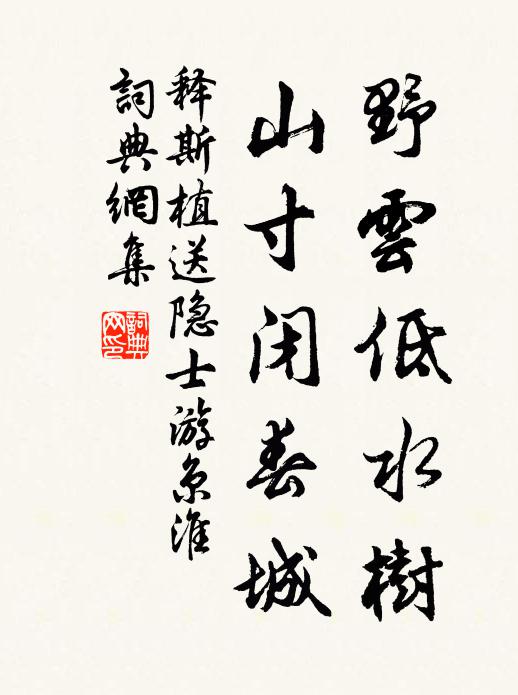 野雲低水樹
山寸闭春城
释斯植送隐士游京淮
詞典網集
詞典网印